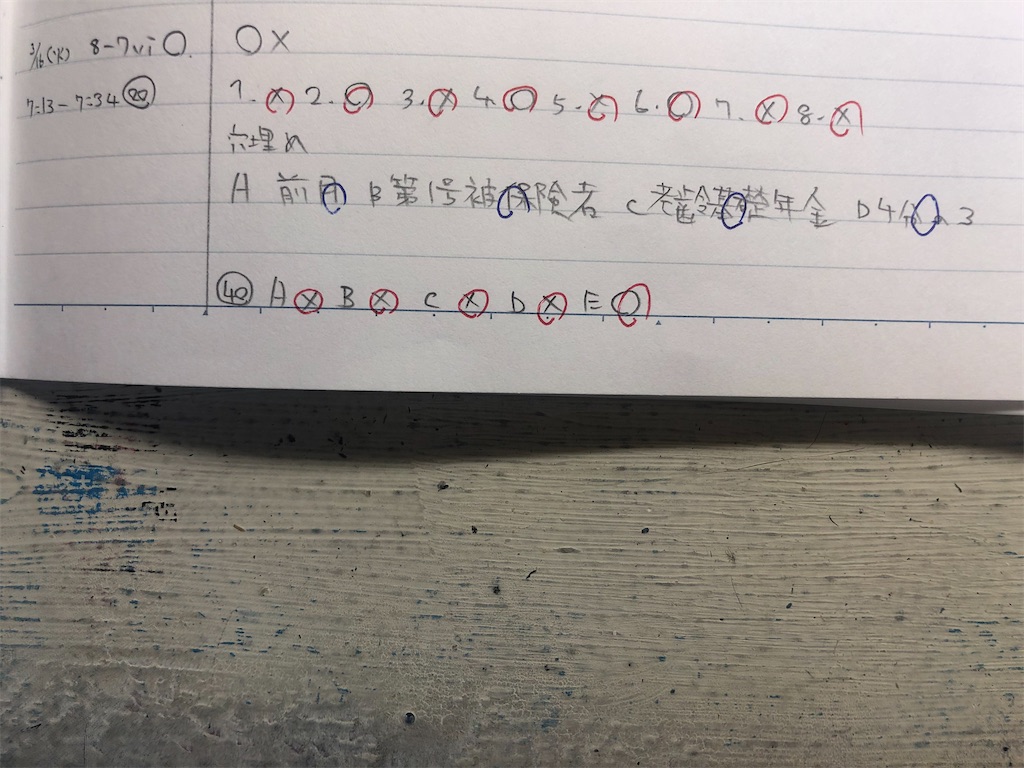 3/16(水) 8-7vi〇. 〇×
7:13-7:34 ⑳ 1.× 2.〇 3.× 4.〇 5.× 6.〇 7.× 8.×
穴埋め
A 前月 B 第1号被保険者 C 老齢基礎年金 D 4分の3
㊵ A× B× C× D× E〇